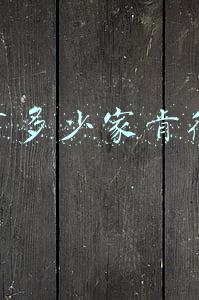 多少家肯